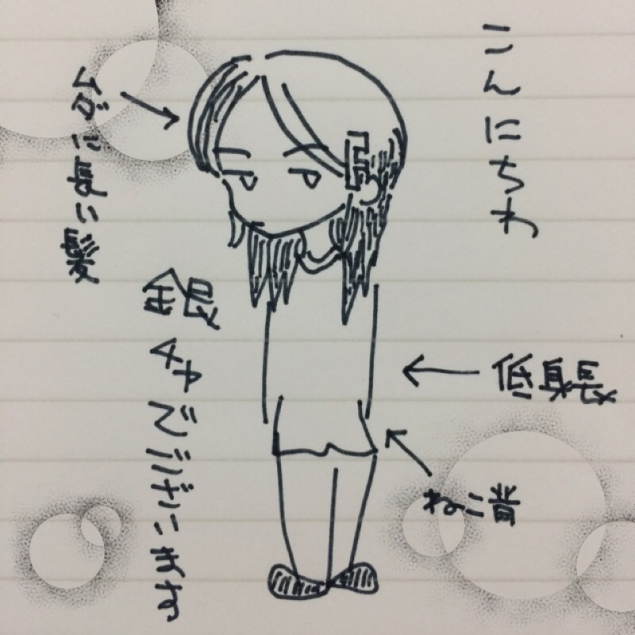 こんにちわ
ムダに長い髪
銀
チャでございます
低身長
ねこ背